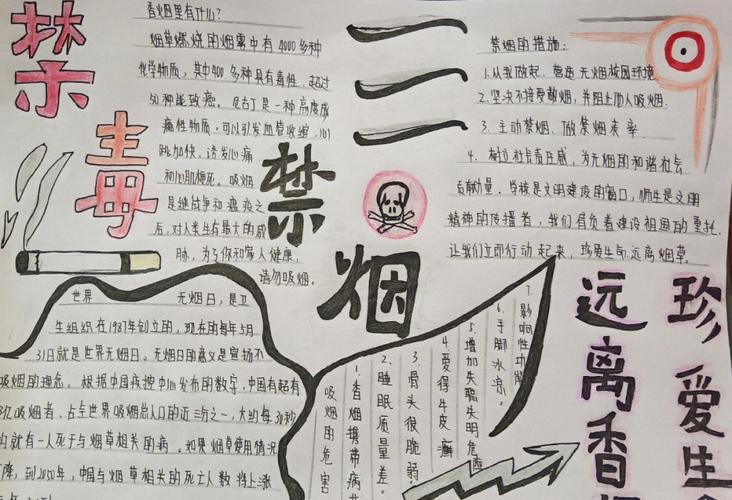 禁毒
禁烟
香烟里有什么?
烟草燃烧的烟雾中有4000多种
化学物质,其中400多种具有毒性,超过
50种能致癌。尼古丁是一种高度成
瘾性物质,可以引发血管收缩,心
跳加快,诱发心痛
和心肌梗死。吸烟
是继战争和瘟疫之
后,对人类生存最大的威
胁,为了你和家人健康,
请勿吸烟。
禁烟的措施:
1.从我做起,营造无烟校园环境
2.坚决不接受敬烟,并阻止他人吸烟.
3.主动禁烟,做禁烟表率.
4.树立社会责任感,为无烟的和谐社会
贡献力量。学校是文明建设的窗口,师生是文明
精神的传播者,我们肩负着建设祖国的重托,
让我们立即行动起来,珍爱生命,远离烟草。
世界 无烟日,是卫
生组织在1987年创立的,现在的每年5月
31日就是世界无烟日。无烟日的意义是宣扬不
吸烟的理念。根据中国疾控中心发布的数字,中国有超有
亿吸烟者,占全世界吸烟总人口的近三分之一,大约每30秒
就有一人死于与烟草相关的病。如果烟草使用情况
到2050年,中国与烟草相关的死亡人数将上涨
吸烟的危害
1.香烟携带病
2.睡眠质量差。
3.骨头很脆弱。
4.爱得牛皮癣
5.增加失聪失明危
6.手脚冰凉。
7.影响性功能
珍爱生
远离香